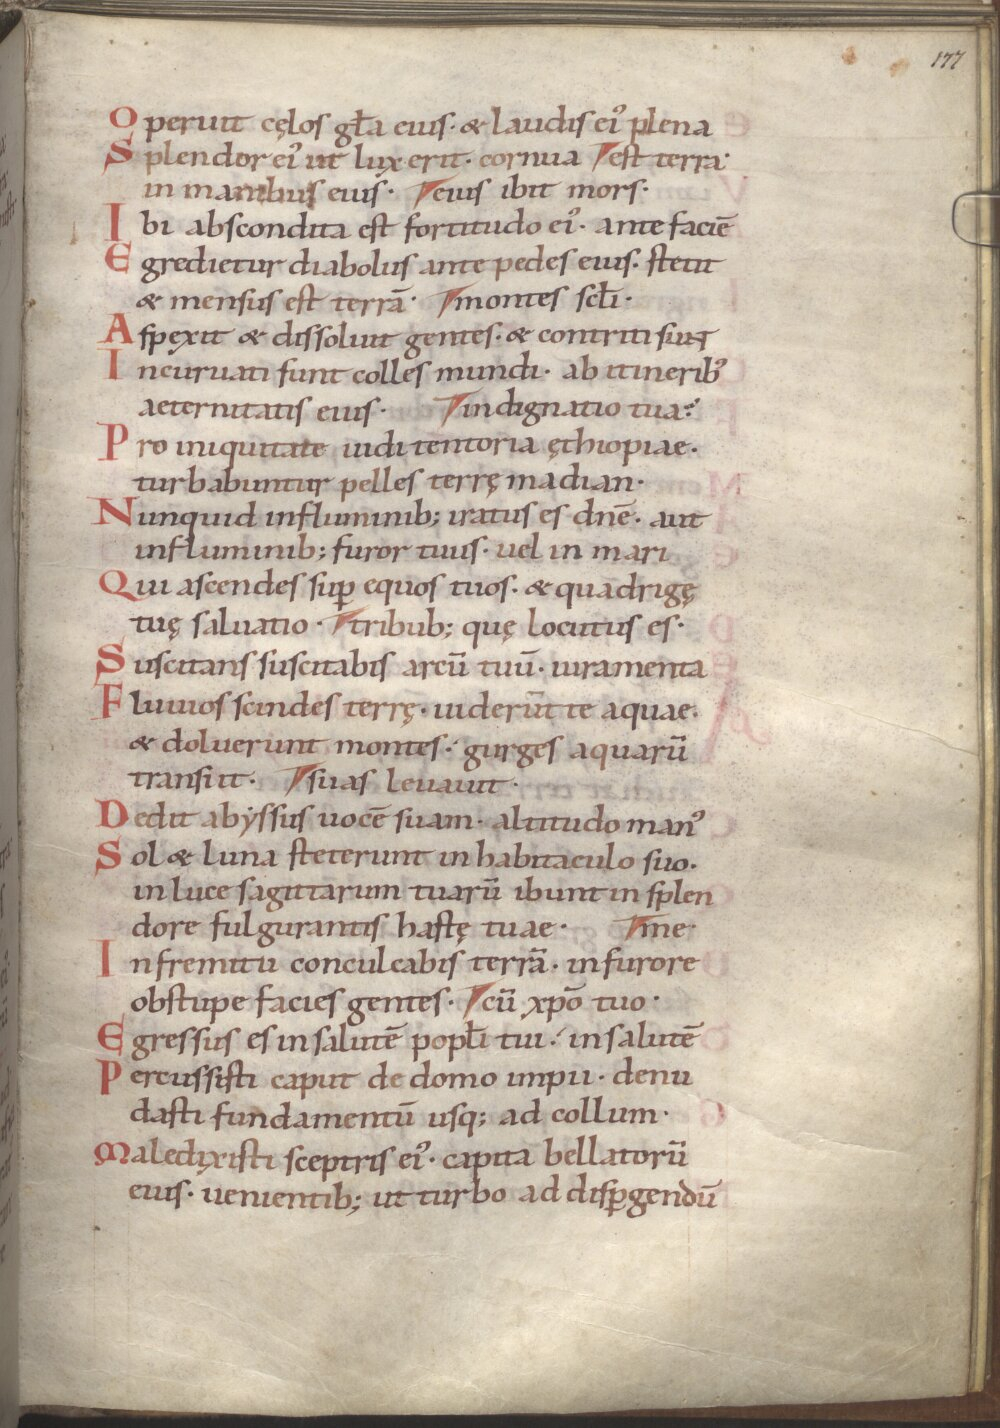 177
Operuit cęlos gła eius· & laudis ei᾽ plena
Splendor ei᾽ ut lux erit· cornua est terra·
in manibus eius· eius ibit mors·
Ibi abscondita est fortitudo ei᾽· ante faciē
Egredietur diabolus ante pedes eius· stetit
& mensus est terrā· montes scłi·
Aspexit & dissoluit gentes· & contriti sunt
Incuruati sunt colles mundi· ab itinerib᾽
aeternitatis eius· indignatio tua·
Pro iniquitate uidi tentoria ęthiopiae·
turbabuntur pelles terrę madian·
Nunquid influminib; iratus es dnē· aut
influminib; furor tuus· uel in mari
Qui ascendes sup̄ equos tuos· & quadrigę
tuę saluatio· tribub; quę locutus es·
Suscitans suscitabis arcū tuū· iuramenta
Fluuios scindes terrę· uiderūt te aquae·
& doluerunt montes· gurges aquarū
transiit· suas leuauit·
Dedit abyssus uocē suam· altitudo man᾽
Sol & luna steterunt in habitaculo suo·
in luce sagittarum tuarū ibunt in splen
dore fulgurantis hastę tuae· me·
Infremitu conculcabis terrā· in furore
obstupe facies gentes· cū xp̄o tuo·
Egressus es in salutē popłi tui· in salutē
Percussisti caput de domo impii· denu
dasti fundamentū usq; ad collum·
Maledixisti sceptris ei᾽· capita bellatorū
eius· uenientib; ut turbo ad disp̄gendū